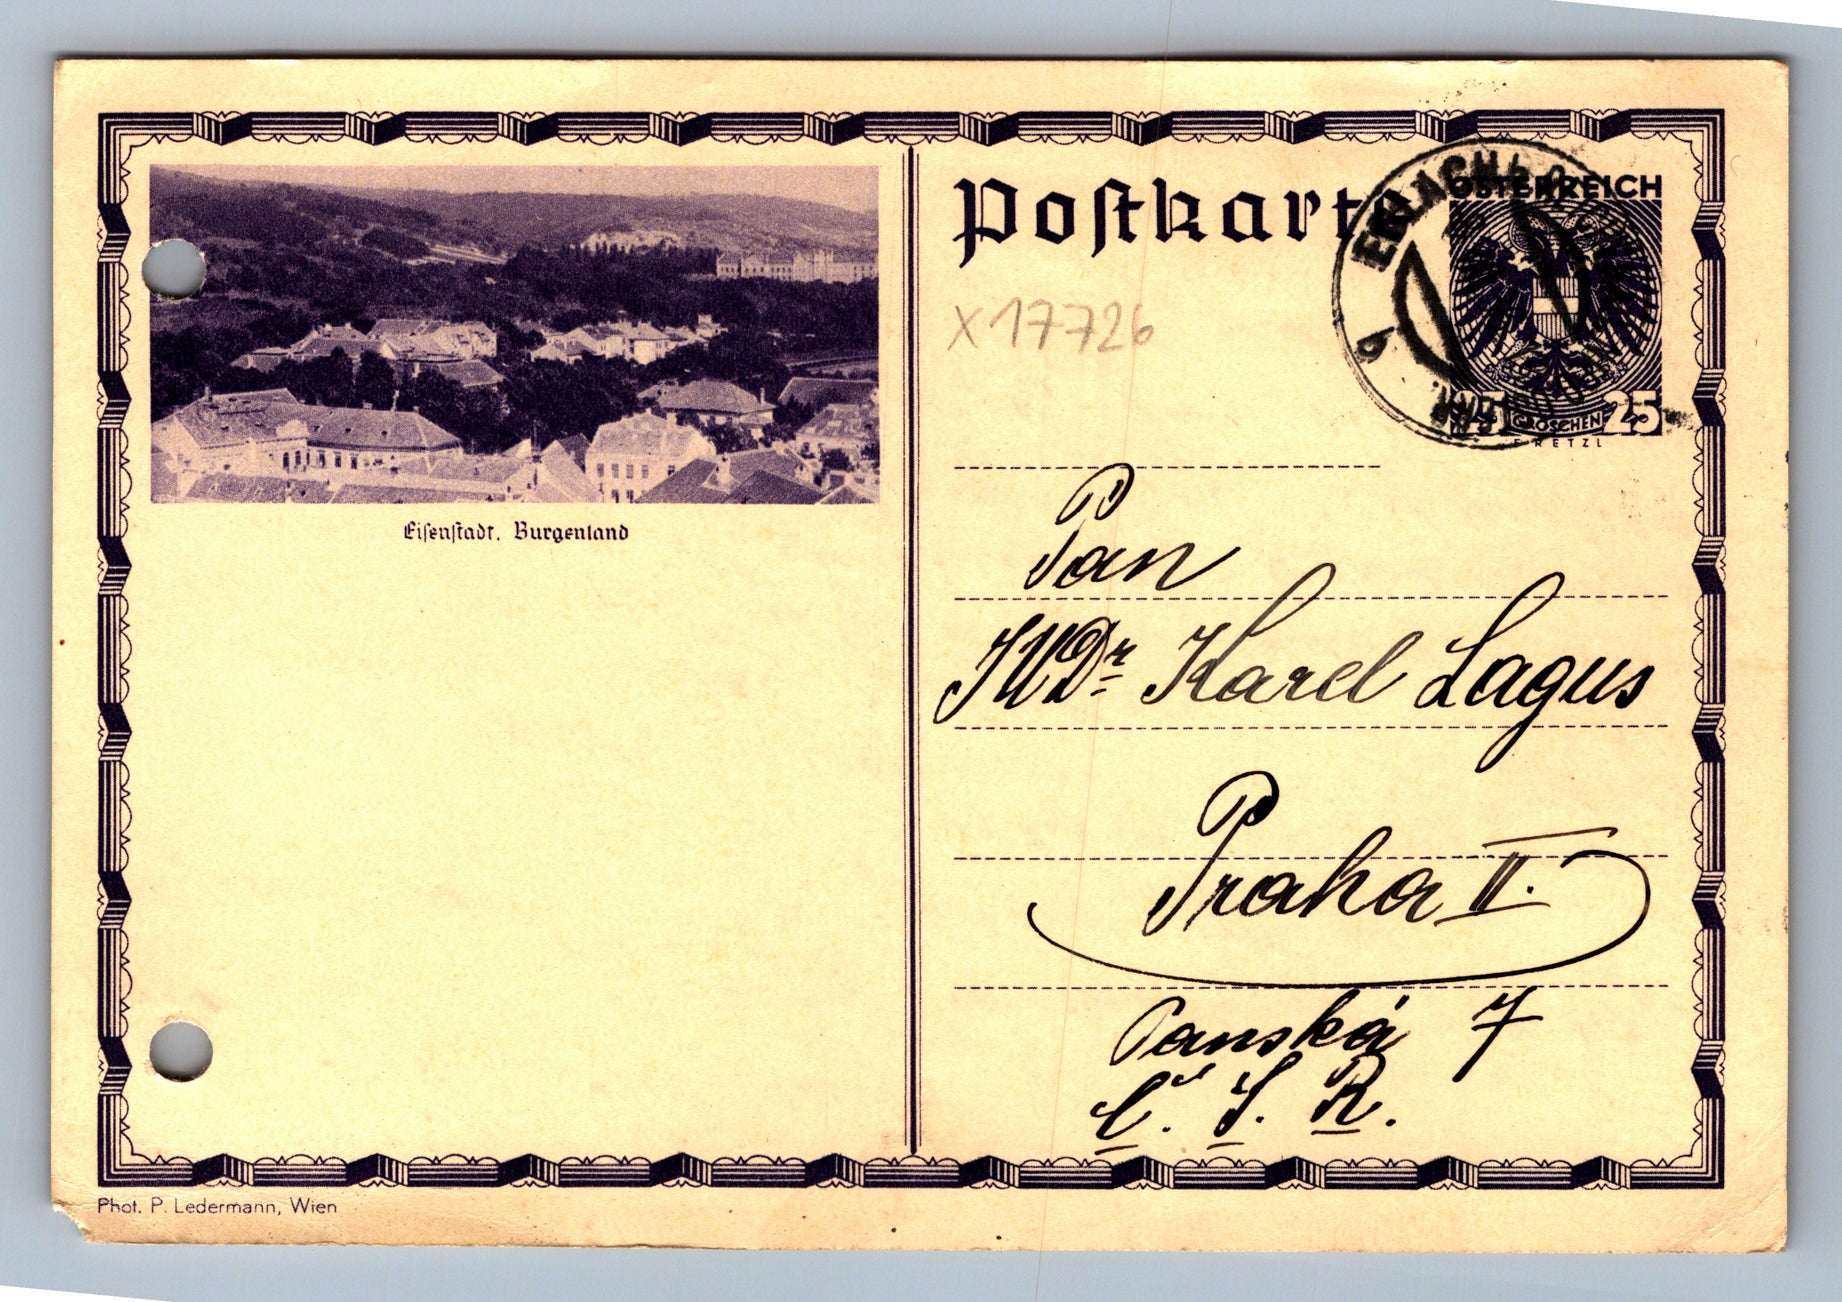 Postkarte
ÖSTERREICH
ERLACH
GROSCHEN 25
RETZL
X 17726
Eisenstadt, Burgenland
Pan
JUDr Karel Lagus
Praha II.
Panská 7
Č. S. R.
Phot. P. Ledermann, Wien